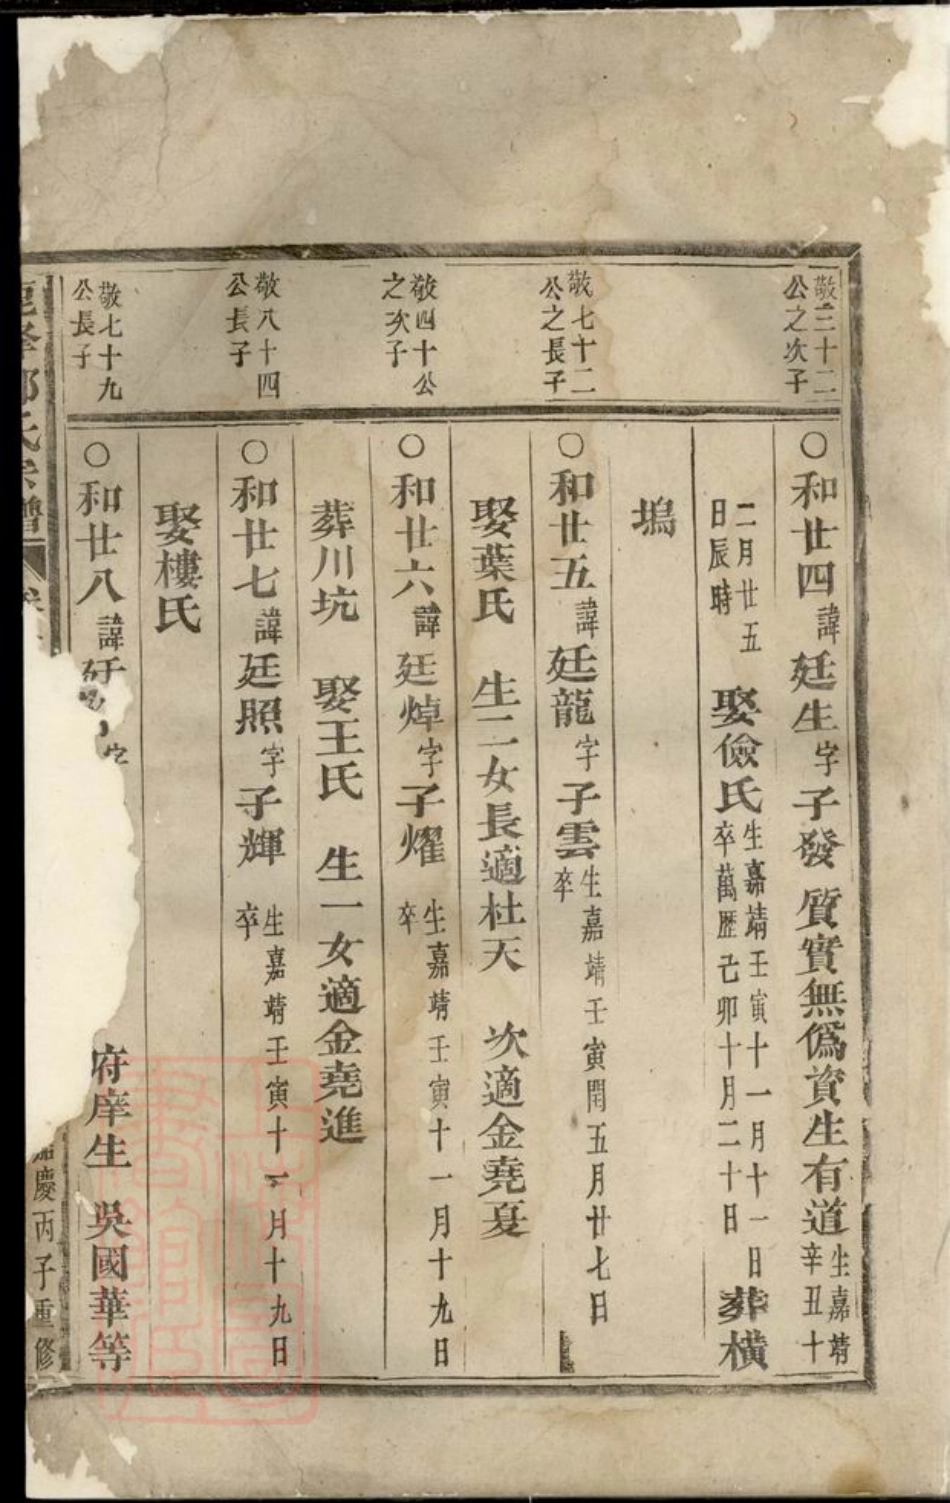 敬三十二
公之次子
○和廿四諱廷生字子發 質實無僞資生有道生嘉靖
辛丑十
二月廿五
日辰時
娶僉氏生嘉靖壬寅十一月十一日
卒萬歷己卯十月二十日
葬橫
塢
敬七十二
公之長子
○和廿五諱廷龍字子雲生嘉靖壬寅閏五月廿七日
卒
娶葉氏 生二女長適杜天 次適金堯夏
敬四十公
之次子
○和廿六諱廷焯字子燿生嘉靖壬寅十一月十九日
卒
葬川坑 娶王氏 生一女適金堯進
敬八十四
公長子
○和廿七諱廷照字子輝生嘉靖壬寅十一月十九日
卒
娶樓氏
敬七十九
公長子
○和廿八諱廷 字
府庠生 吳國華等
氏宗譜
嘉慶丙子重修